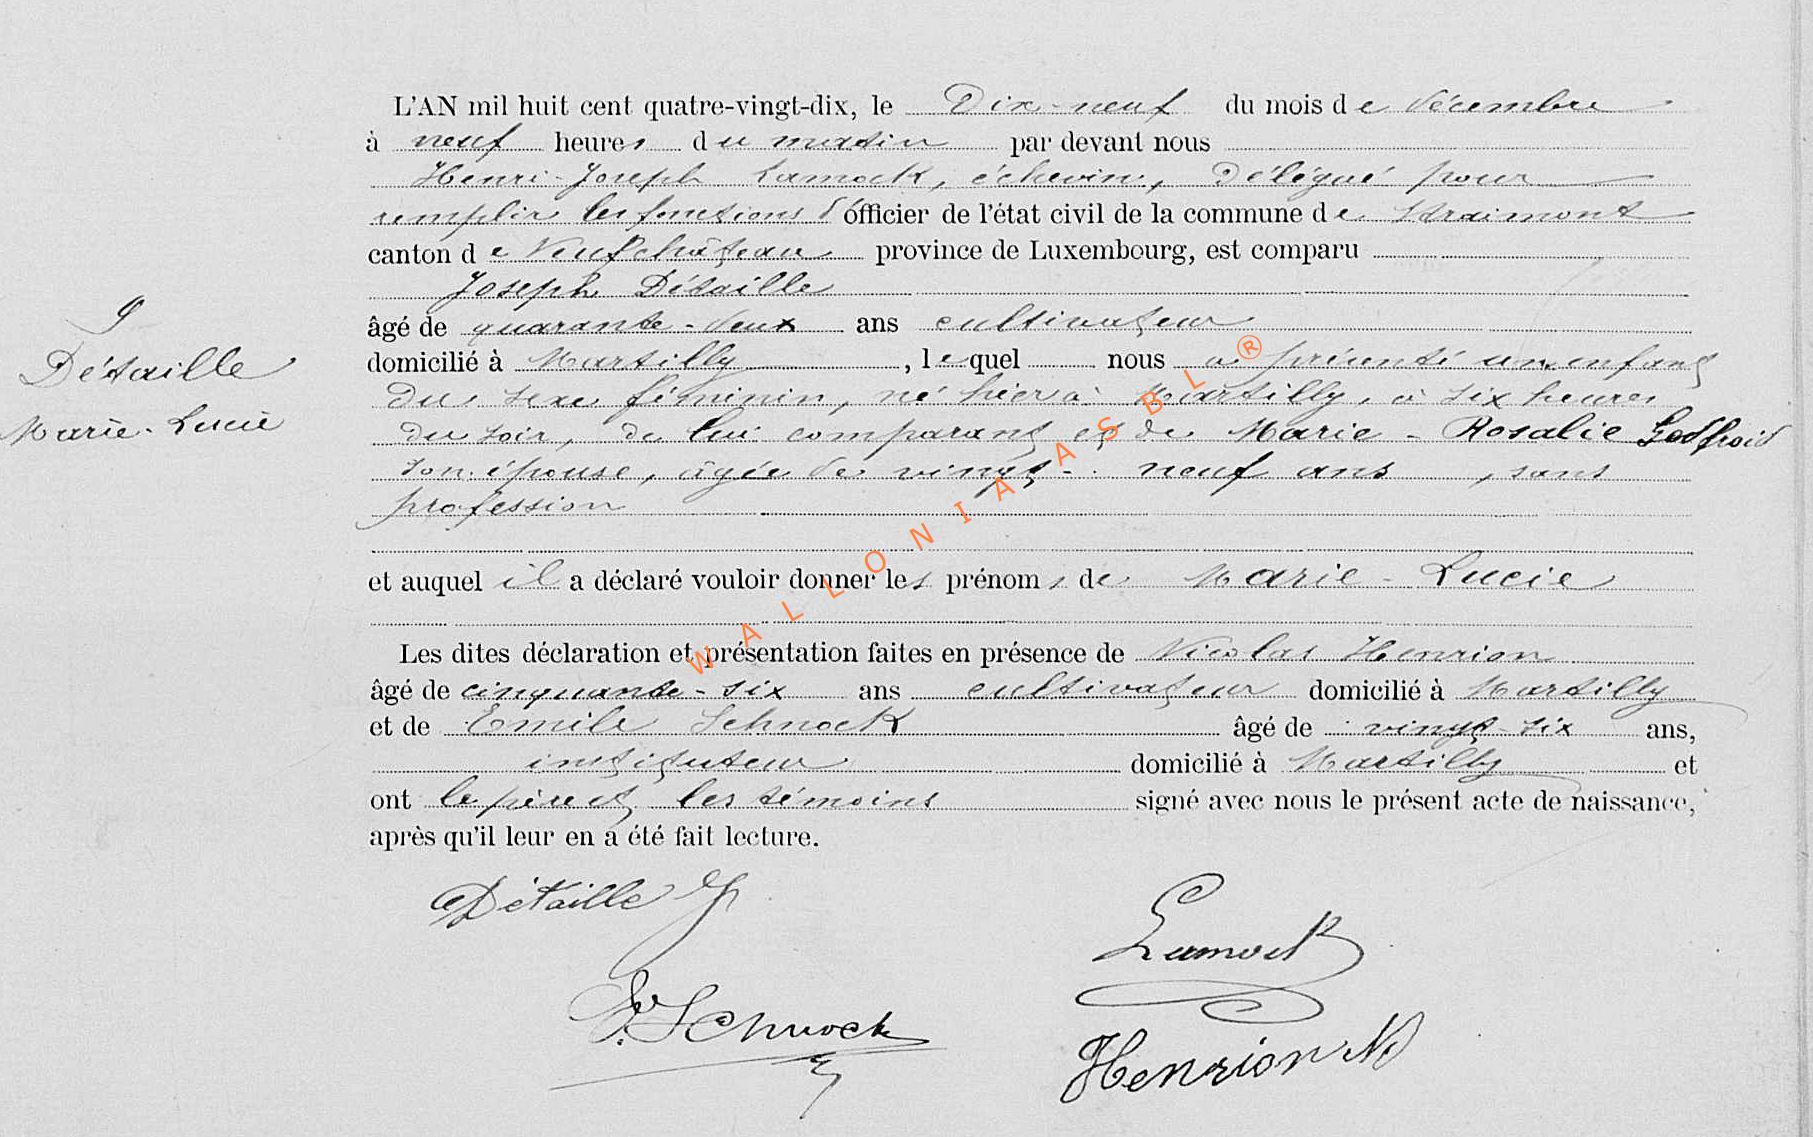 L'AN mil huit cent quatre-vingt-dix, le Dix-neuf du mois de décembre
à neuf heures du matin par devant nous
Henri-Joseph Lamock, échevin, Délégué pour
remplir les fonctions d'officier de l'état civil de la commune de Straimont
canton de Neufchâteau province de Luxembourg, est comparu
Joseph Détaille
âgé de quarante-deux ans cultivateur
domicilié à Martilly, lequel nous a présenté un enfant
du sexe féminin, né hier à Martilly, à six heures
du soir, de lui comparant et de Marie-Rosalie Godfroid
son épouse, âgée de vingt-neuf ans, sans
profession
et auquel il a déclaré vouloir donner les prénoms de Marie-Lucie
Les dites déclaration et présentation faites en présence de Nicolas Henrion
âgé de cinquante-six ans cultivateur domicilié à Martilly
et de Emile Schnock âgé de vingt-six ans,
instituteur domicilié à Martilly et
ont le père et les témoins signé avec nous le présent acte de naissance,
après qu'il leur en a été fait lecture.
9
Détaille
Marie-Lucie
Détaille J
Lamock
E. Schnock
Henrion N
WALLONIA ASBL®